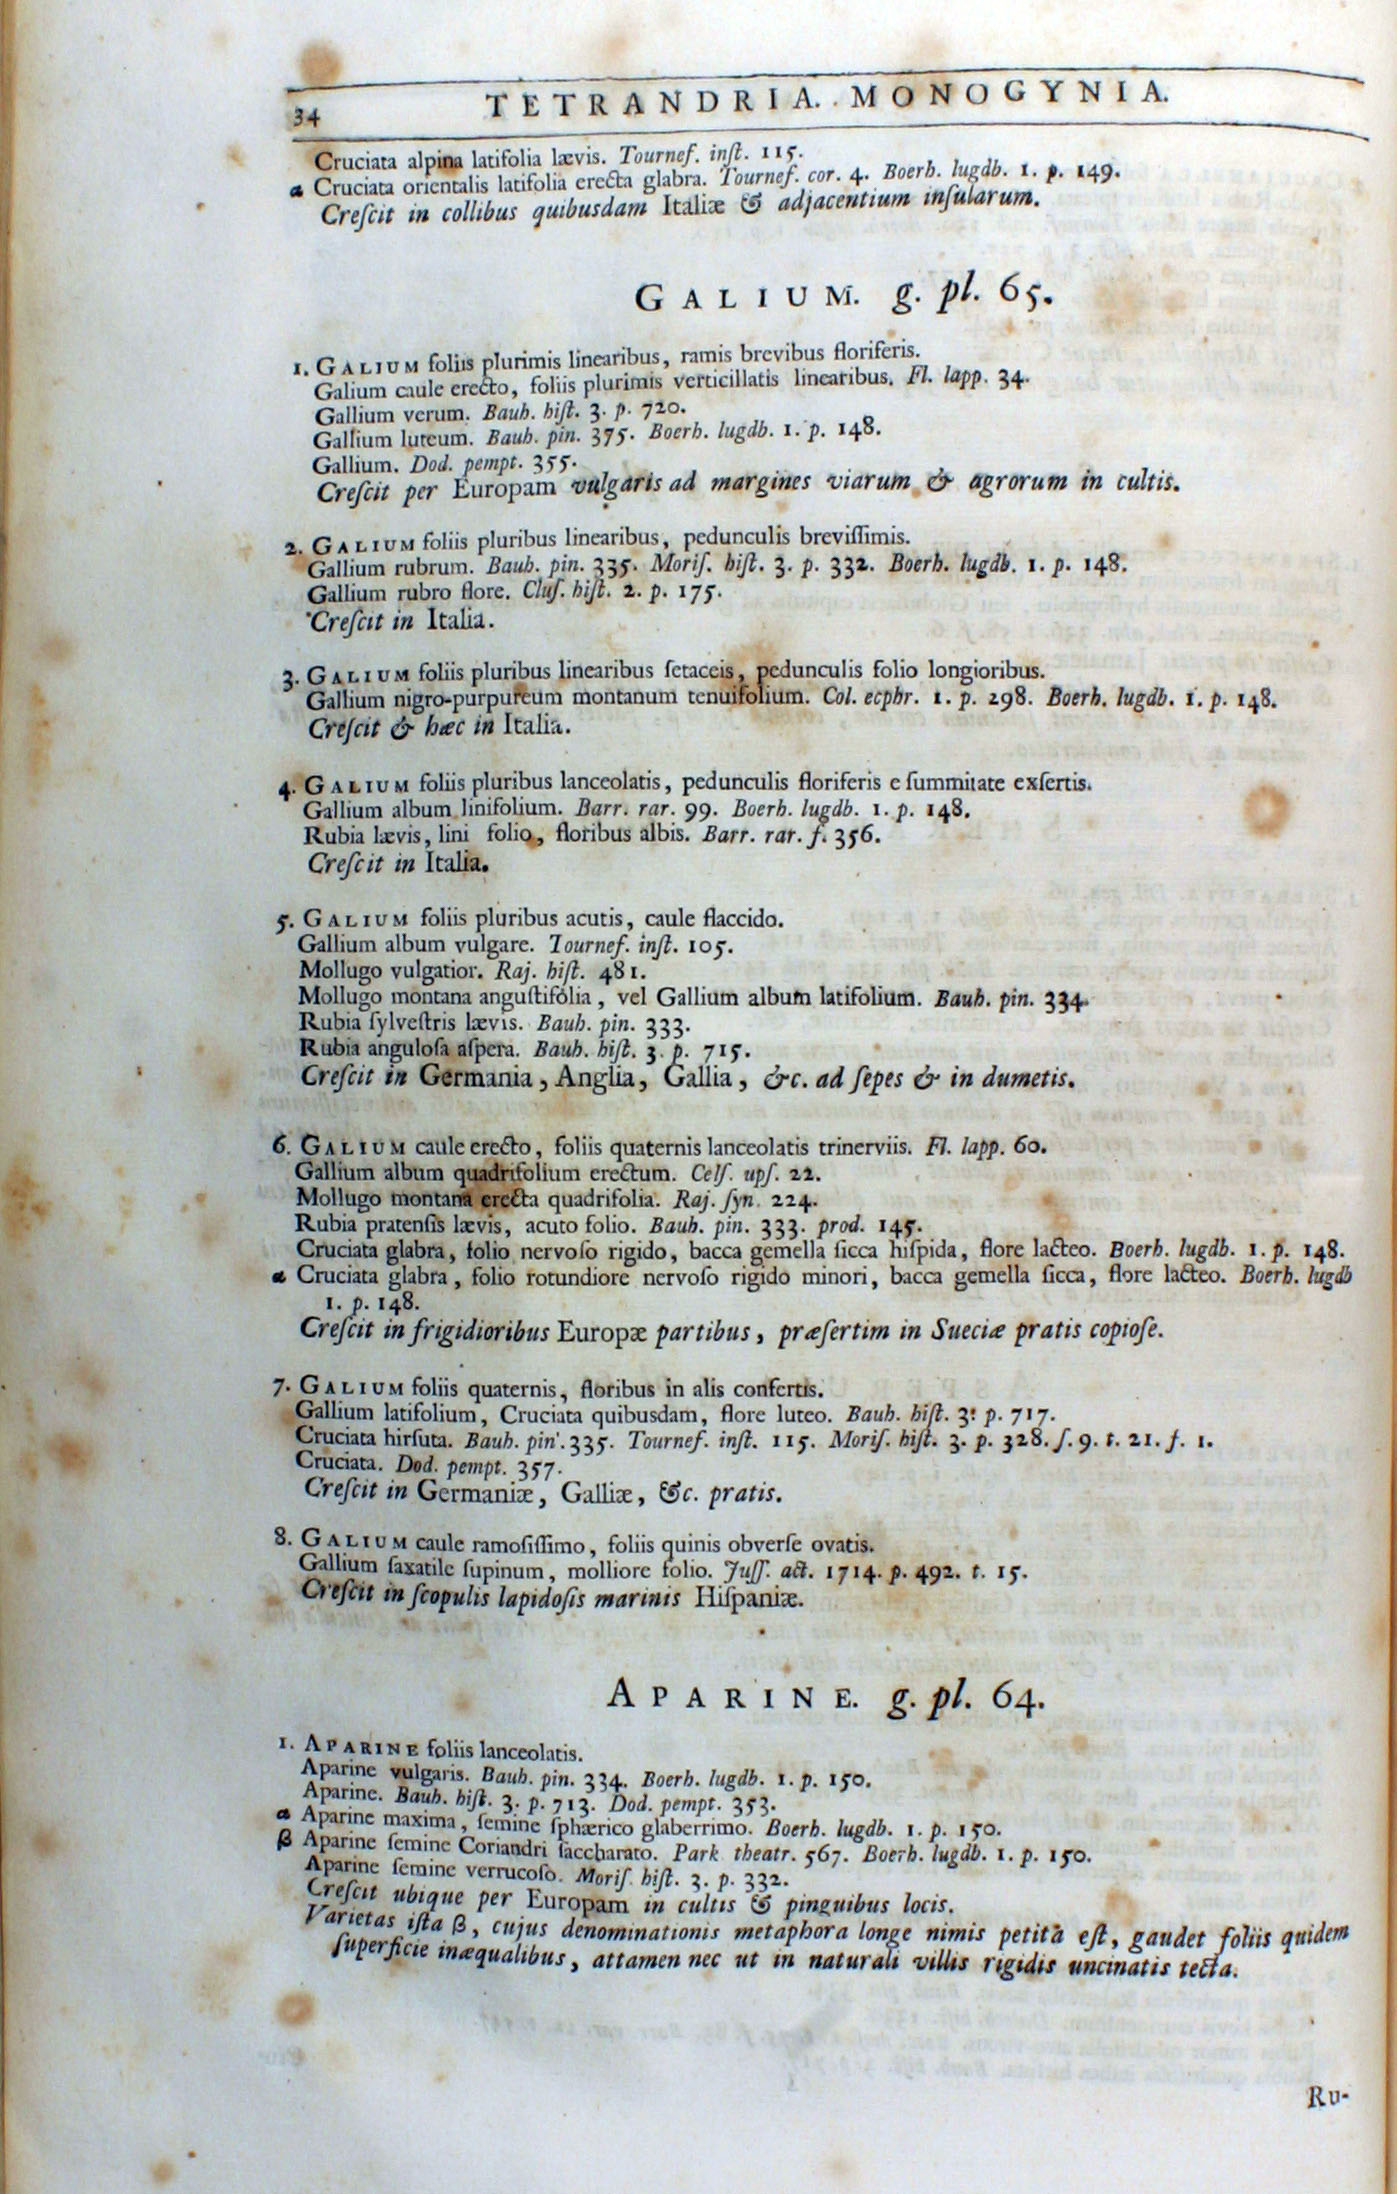 34 TETRANDRIA. MONOGYNIA.
Cruciata alpina latifolia lævis. Tournef. inſt. 115.
α Cruciata orientalis latifolia erecta glabra. Tournef. cor. 4. Boerh. lugdb. 1. p. 149.
Creſcit in collibus quibusdam Italiæ & adjacentium inſularum.
GALIUM. g. pl. 65.
1. GALIUM foliis plurimis linearibus, ramis brevibus floriferis.
Galium caule erecto, foliis plurimis verticillatis linearibus. Fl. lapp. 34.
Gallium verum. Bauh. hiſt. 3. p. 720.
Gallium luteum. Bauh. pin. 375. Boerh. lugdb. 1. p. 148.
Gallium. Dod. pempt. 355.
Creſcit per Europam vulgaris ad margines viarum & agrorum in cultis.
2. GALIUM foliis pluribus linearibus, pedunculis breviſſimis.
Gallium rubrum. Bauh. pin. 335. Moriſ. hiſt. 3. p. 332. Boerh. lugdb. 1. p. 148.
Gallium rubro flore. Cluſ. hiſt. 2. p. 175.
Creſcit in Italia.
3. GALIUM foliis pluribus linearibus ſetaceis, pedunculis folio longioribus.
Gallium nigro-purpureum montanum tenuifolium. Col. ecphr. 1. p. 298. Boerh. lugdb. 1. p. 148.
Creſcit & hæc in Italia.
4. GALIUM foliis pluribus lanceolatis, pedunculis floriferis e ſummitate exſertis.
Gallium album linifolium. Barr. rar. 99. Boerh. lugdb. 1. p. 148.
Rubia lævis, lini folio, floribus albis. Barr. rar. f. 356.
Creſcit in Italia.
5. GALIUM foliis pluribus acutis, caule flaccido.
Gallium album vulgare. Tournef. inſt. 105.
Mollugo vulgatior. Raj. hiſt. 481.
Mollugo montana anguſtifolia, vel Gallium album latifolium. Bauh. pin. 334.
Rubia ſylveſtris lævis. Bauh. pin. 333.
Rubia anguloſa aſpera. Bauh. hiſt. 3. p. 715.
Creſcit in Germania, Anglia, Gallia, &c. ad ſepes & in dumetis.
6. GALIUM caule erecto, foliis quaternis lanceolatis trinerviis. Fl. lapp. 60.
Gallium album quadrifolium erectum. Celſ. upſ. 22.
Mollugo montana erecta quadrifolia. Raj. ſyn. 224.
Rubia pratenſis lævis, acuto folio. Bauh. pin. 333. prod. 145.
Cruciata glabra, folio nervoſo rigido, bacca gemella ſicca hiſpida, flore lacteo. Boerh. lugdb. 1. p. 148.
α Cruciata glabra, folio rotundiore nervoſo rigido minori, bacca gemella ſicca, flore lacteo. Boerh. lugdb
1. p. 148.
Creſcit in frigidioribus Europæ partibus, præſertim in Sueciæ pratis copioſe.
7. GALIUM foliis quaternis, floribus in alis confertis.
Gallium latifolium, Cruciata quibusdam, flore luteo. Bauh. hiſt. 3. p. 717.
Cruciata hirſuta. Bauh. pin. 335. Tournef. inſt. 115. Moriſ. hiſt. 3. p. 328. ſ. 9. t. 21. f. 1.
Cruciata. Dod. pempt. 357.
Creſcit in Germaniæ, Galliæ, &c. pratis.
8. GALIUM caule ramoſiſſimo, foliis quinis obverſe ovatis.
Gallium ſaxatile ſupinum, molliore folio. Juſſ. act. 1714. p. 492. t. 15.
Creſcit in ſcopulis lapidoſis marinis Hiſpaniæ.
APARINE. g. pl. 64.
1. APARINE foliis lanceolatis.
Aparine vulgaris. Bauh. pin. 334. Boerh. lugdb. 1. p. 150.
Aparine. Bauh. hiſt. 3. p. 713. Dod. pempt. 353.
α Aparine maxima, ſemine ſphærico glaberrimo. Boerh. lugdb. 1. p. 150.
β Aparine ſemine Coriandri ſaccharato. Park theatr. 567. Boerh. lugdb. 1. p. 150.
Aparine ſemine verrucoſo. Moriſ. hiſt. 3. p. 332.
Creſcit ubique per Europam in cultis & pinguibus locis.
Varietas iſta β, cujus denominationis metaphora longe nimis petita eſt, gaudet foliis quidem
ſuperficie inæqualibus, attamen nec ut in naturali villis rigidis uncinatis tecta.
Ru-